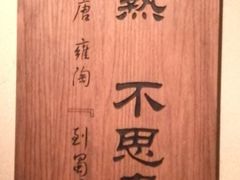 熟 不思
唐 雍淘『到蜀